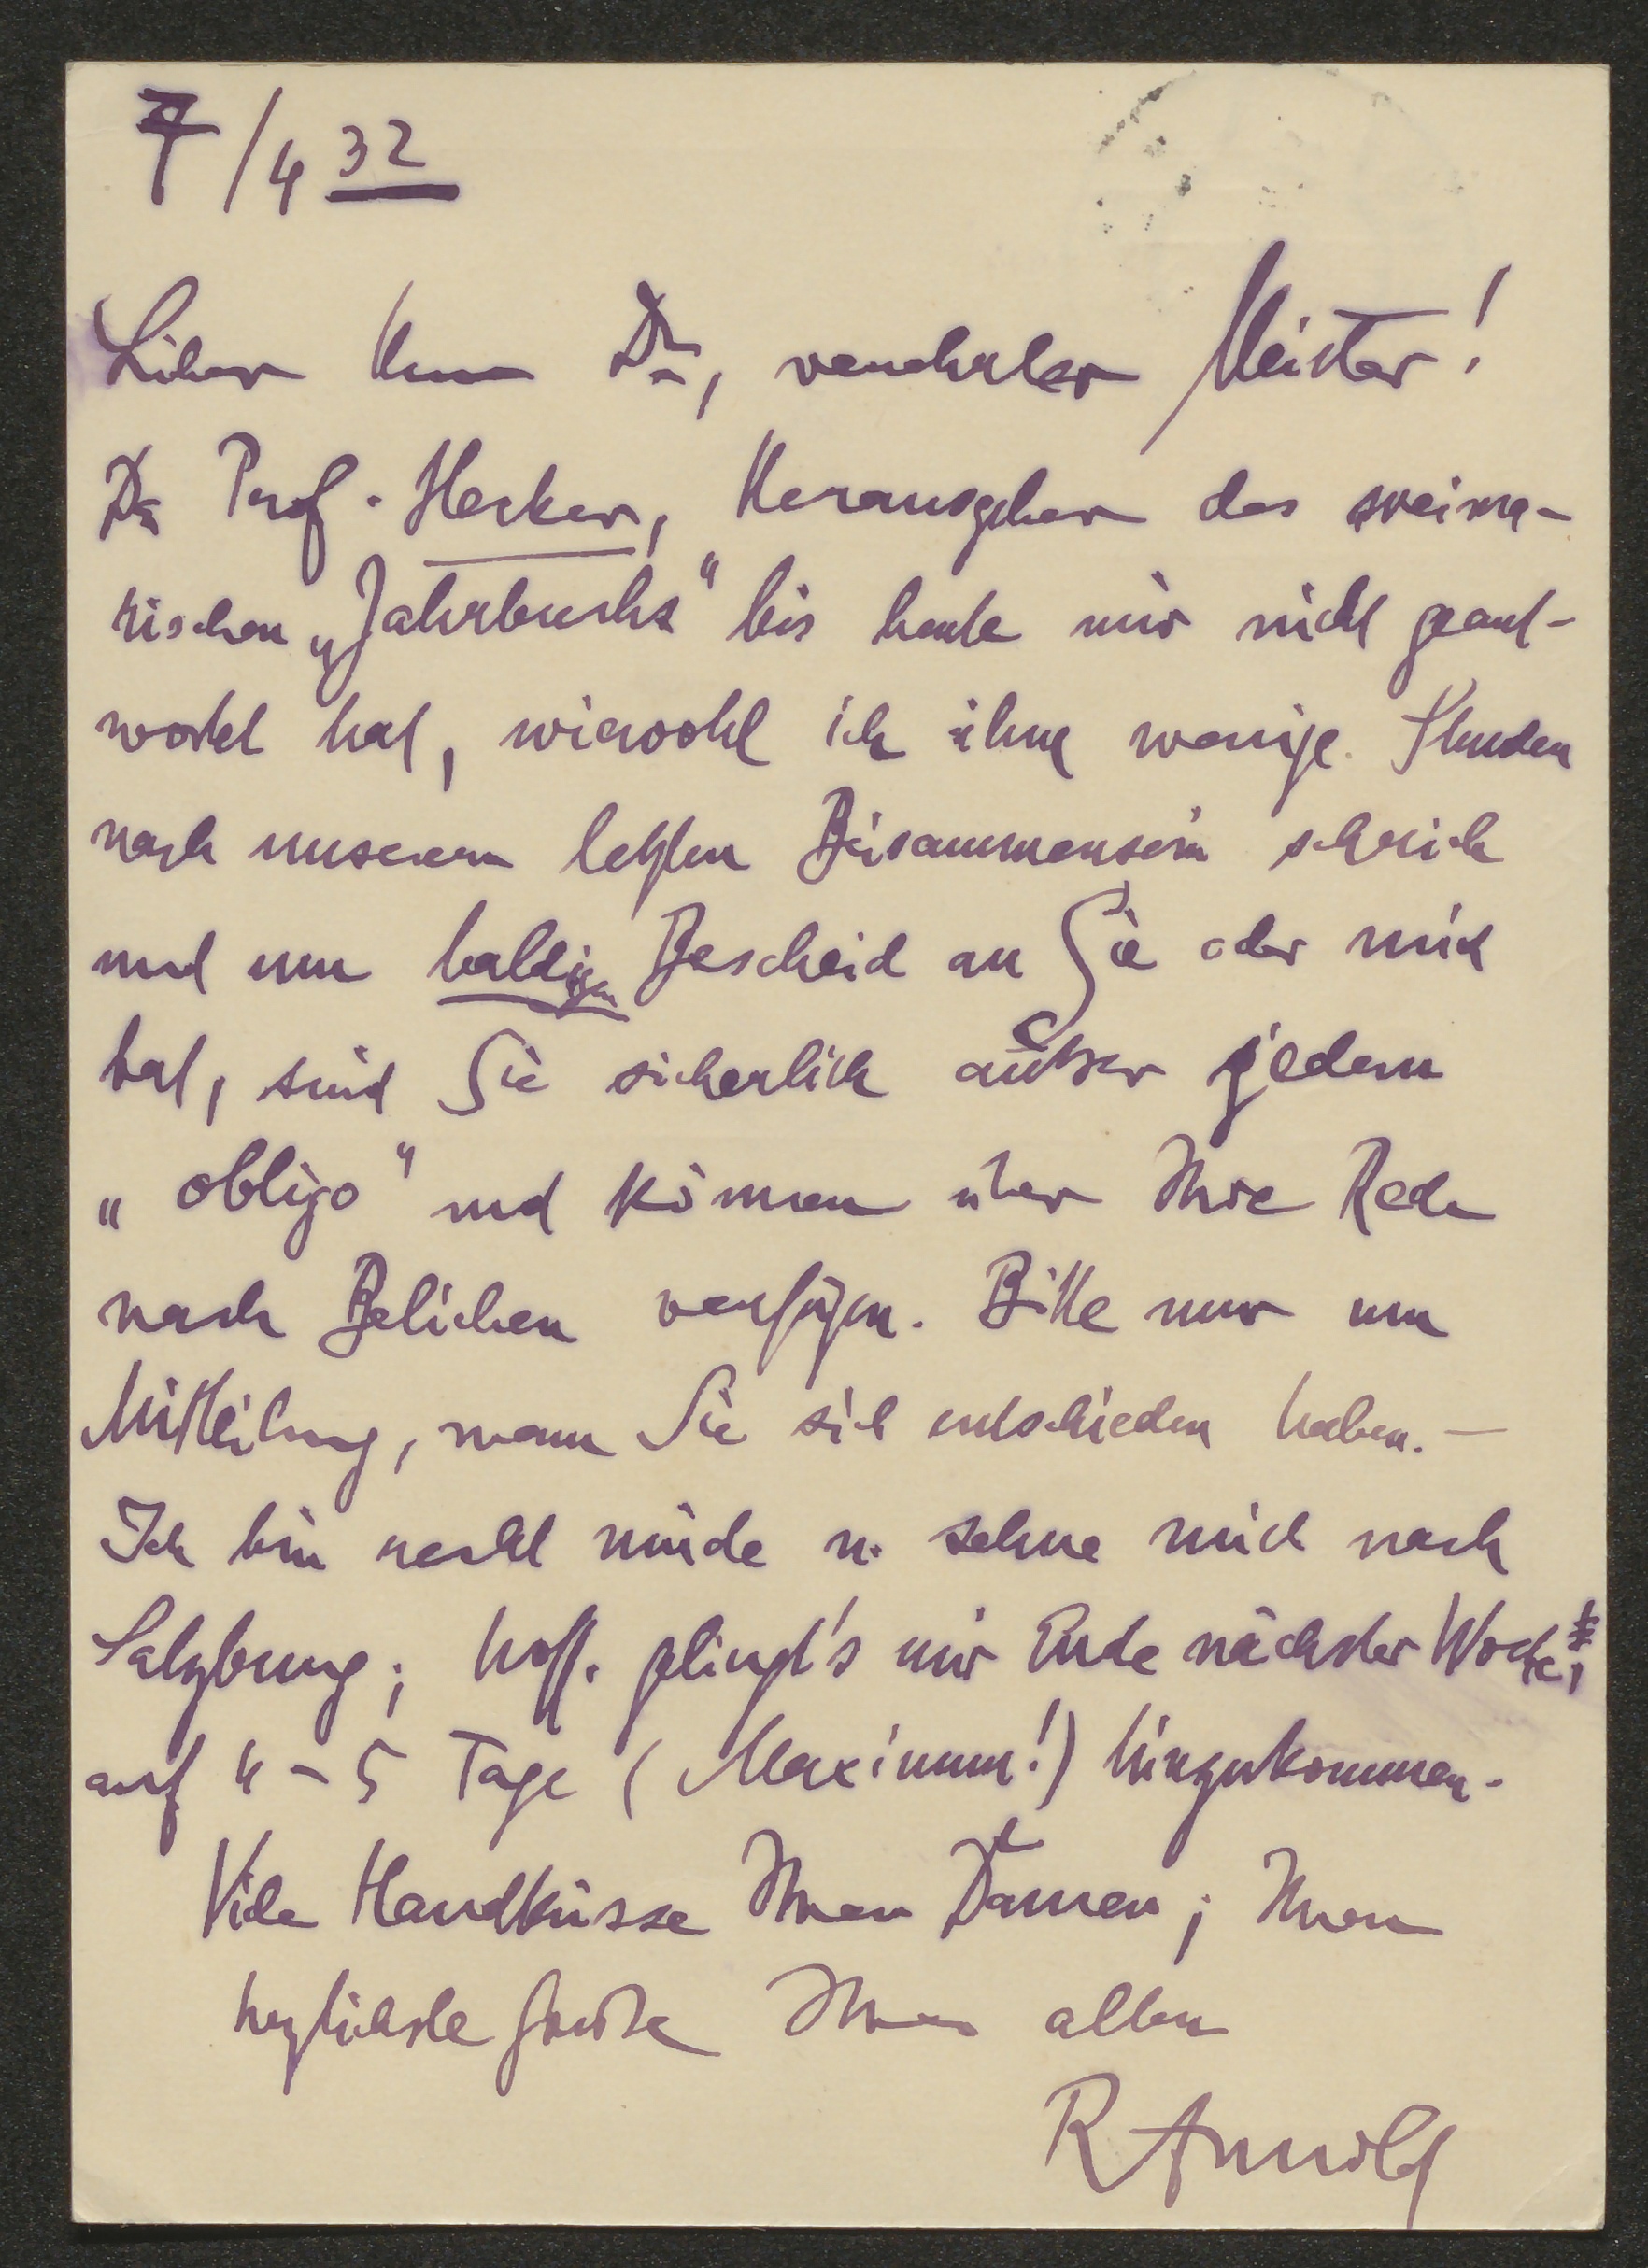 7/4 32
Lieber Herr Dr, verehrter Meister!
Da Prof. Hecker, Herausgeber des weima-
rischen „Jahrbuchs" bis heute mir nicht geant-
wortet hat, wiewohl ich ihm wenige Stunden
nach unserem letzten Beisammensein schrieb
und um baldigen Bescheid an Sie oder mich
bat, sind Sie sicherlich außer jedem
„obligo" und können über Ihre Rede
nach Belieben verfügen. Bitte nur um
Mitteilung, wann Sie sich entschieden haben. –
Ich bin recht müde u. sehne mich nach
Salzburg; hoff. gelingt's mir Ende nächster Woche,
auf 4–5 Tage (Maximum!) hinzukommen.
Viele Handküsse Ihren Damen; Ihnen
herzlichste Grüße Ihnen allen
RArnold